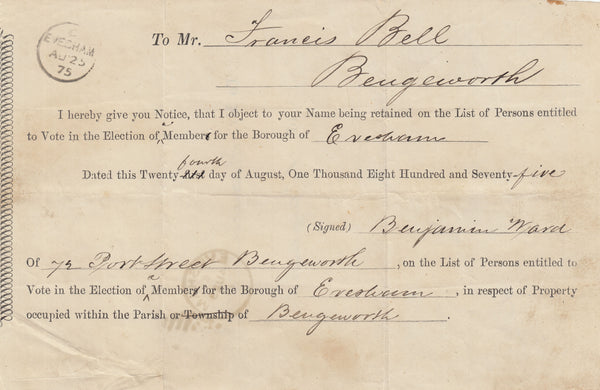 C
EVESHAM
AU 25
75
To Mr. Francis Bell
Bengeworth
I hereby give you Notice, that I object to your Name being retained on the List of Persons entitled
to Vote in the Election of a Member for the Borough of Evesham
fourth
Dated this Twenty day of August, One Thousand Eight Hundred and Seventy-five
(Signed) Benjamin Ward
Of 72 Port Street Bengeworth, on the List of Persons entitled to
Vote in the Election of a Member for the Borough of Evesham, in respect of Property
occupied within the Parish or Township of Bengeworth.